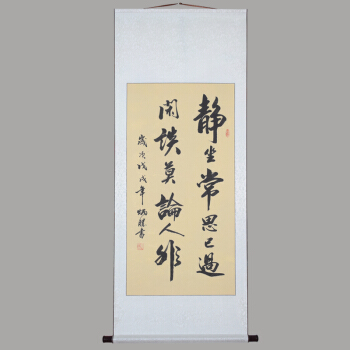 静坐常思己過
閑談莫論人非
歲次戊戌年書